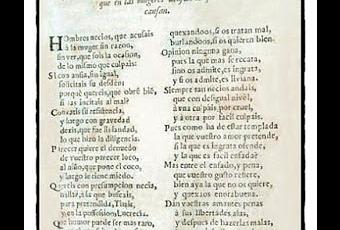 que en las mugeres
causan.
Hombres necios, que acusais
à la muger sin razon,
sin ver, que sois la ocasion,
de lo mismo que culpais:
Si con ansia sin igual,
solicitais su desden
porquè quereis, que obrè biē,
si las incitais al mal?
Conbatis su resistencia,
y luego con gravedad
dezis, que fue liviandad,
lo que hizo la diligencia.
Parecer quiere el denuedo
de vuestro parecer loco,
al niño, que pone el coco,
y luego le tiene miedo.
Quereis con presumpcion necia,
hallar, à la que buscais,
para pretendida, Thais,
y en la possession, Lucrecia.
Què humor puede ser mas raro,
quexandoos, si os tratan mal,
burlandoos, si os quieren bien.
Opinion ninguna gana,
pues la que mas se recata,
sino os admite, es ingrata,
y si os admite, es liviana.
Siempre tan necios andais,
que con desigual nivèl,
à vna culpais, por cruel,
y à otra por facil culpais.
Pues como ha de estar templada
la que vuestro amor pretende,
si la que es ingrata ofende,
y la que es facil enfada?
Mas entre el enfado, y pena,
que vuestro gusto refiere,
bien aya la que no os quiere,
y quexaos enorabuena.
Dan vuestras amantes penas
à sus libertades alas,
y despues de hazerlas malas,